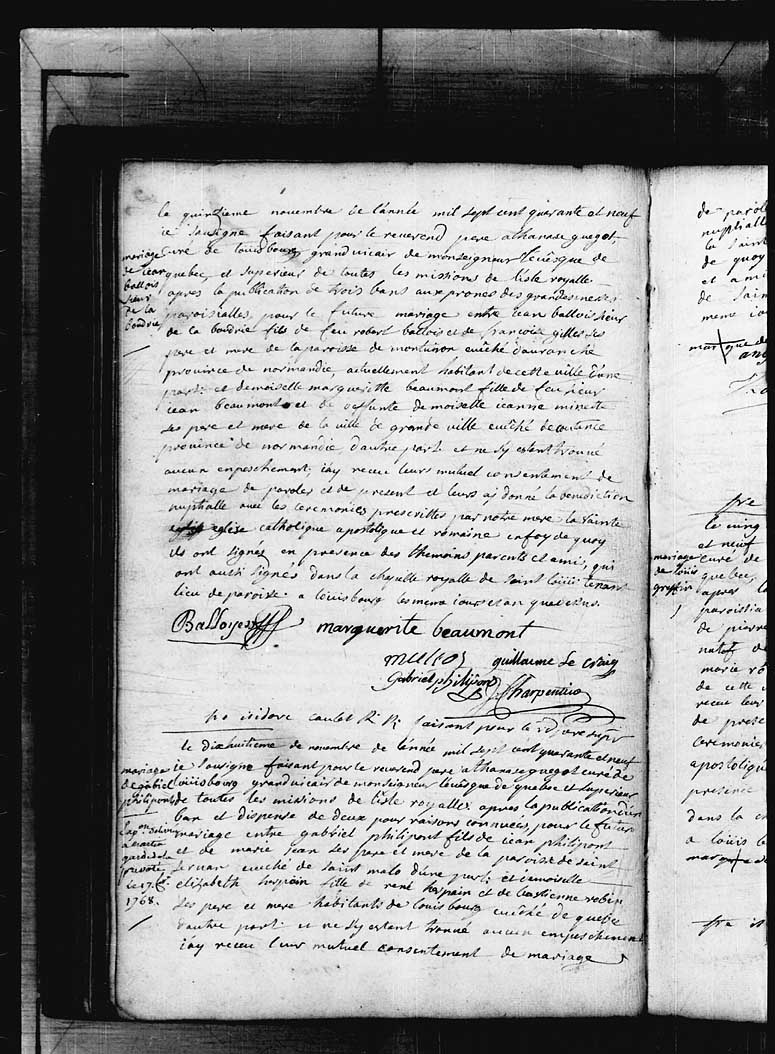 le quinzieme novembre de l'année mil sept cent quarante et neuf
ie sousigne faisant pour le reverend pere athanase guegot,
curé de louisbourg grand vicair de monseigneur l'evêsque de
quebec, et superieur de toutes les missions de l'isle royalle.
apres la publication de trois bans aux prones des grandes messes
paroisialles, pour le future mariage entre jean ballois sieur
de la bordrie fils de feu robert ballois et de francoise gilles ses
pere et mere de la paroisse de evêché d'auranche
province de normandie, actuellement habitant de cette ville d'une
part: et demoiselle marguerite beaumont fille de feu sieur
jean beaumont et de deffunte demoiselle jeanne minette
ses pere et mere de la ville de grande ville evêché de coutance
province de normandie, d'autre part et ne s'y estent trouué
aucun enpeschement; j'ay receu leurs mutuel consentement de
mariage de paroles et de present et leurs aj donné la benediction
nuptialle avec les ceremonies prescrittes par notre mere la sainte
eglise catholique apostolique et romaine en foy de quoy
ils ont signés en presence des themoins parents et ami, qui
ont aussi signés dans la chapelle royalle de saint louis tenant
lieu de paroise. a louisbourg les meme jours et an que dessus.
mariage
de jean
ballois
sieur
de la
bordrie
Balloyes marguerite beaumont
mullos guillaume Le
Gabriel philipont
Charpentier
fre isidore caulet R. R. faisant pour le rd pre supr
le dixhuitieme de novembre de l'année mil sept cent quarante et neuf
ie sousigne faisant pour le reverend pere athanase guegot curé de
louisbourg grand vicair de monseigneur l'evesque de quebec et superieur
de toutes les missions de l'isle royalle apres la publication d'un
ban et dispense de deux pour raisons connuées, pour le futur
mariage entre gabriel philipont fils de jean philipont
et de marie jean ses pere et mere de la paroise de saint
servan evêché de saint malo d'une part: et demoiselle
elizabeth hespain fille de rené hespain et de bastienne robin
ses pere et mere habitants de louisbourg evêché de quebec
d'autre part: et ne s'y estent trouué aucun empeschement
j'ay receu leur mutuel consentement de mariage
mariage
de gabriel
philipont
1768.
de parole
nuptialle
la saint
de quoy
et ami
de sain
meme jou
marque de
fre
le cinq
et neuf
curé de
quebec,
apres la
paroissia
de pierre
natif de
marie
de cette
receu leur
de prese
ceremonie
apostoliqu
presence
dans la ch
a louis b
marque de
mariage
de louis
fre is